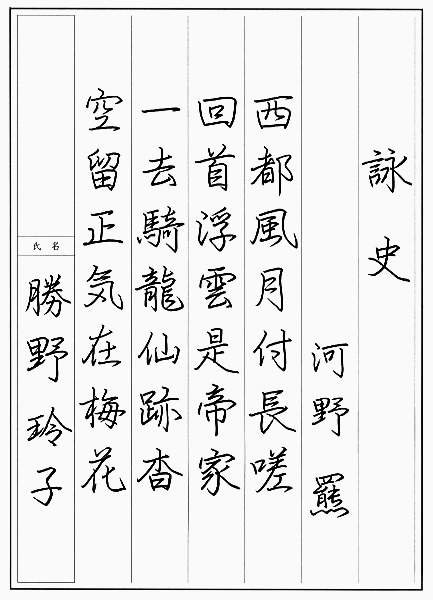 詠史
河野羆
西都風月付長嗟
回首浮雲是帝家
一去騎龍仙跡杳
空留正気在梅花
氏名
勝野玲子